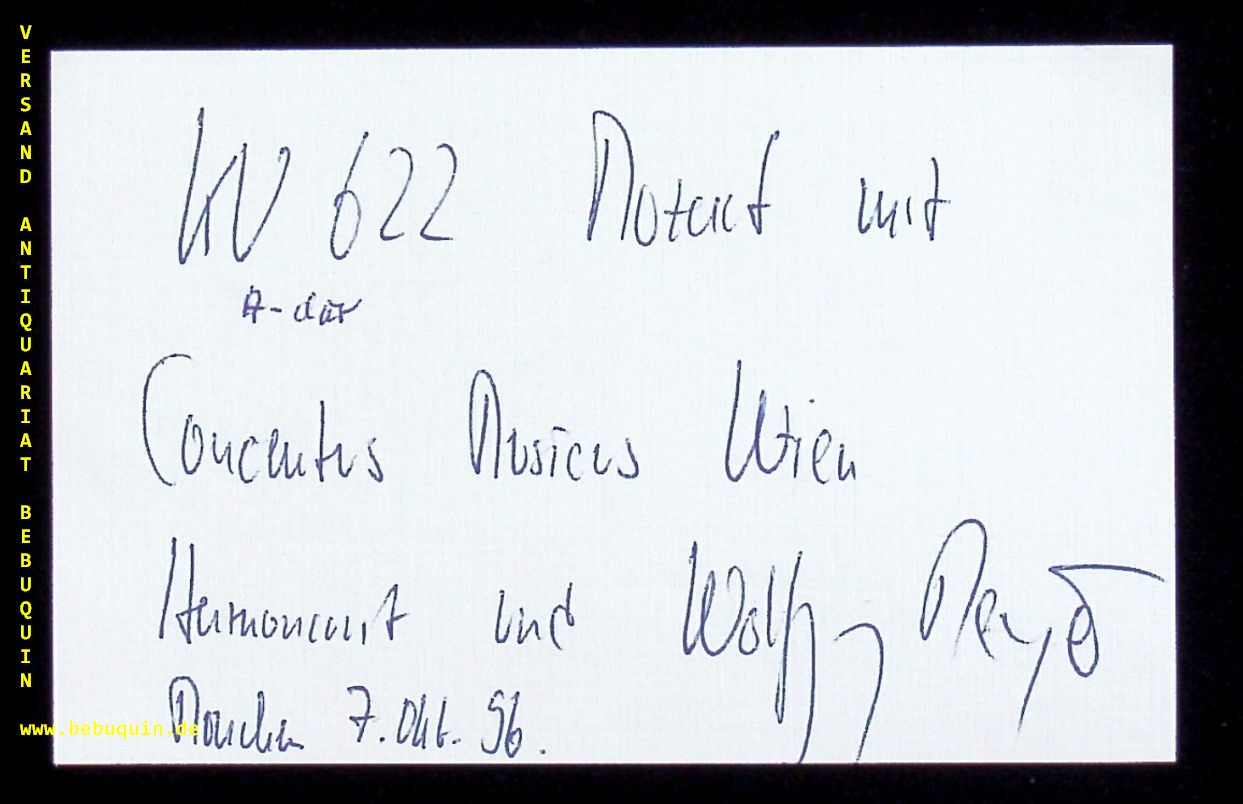 VERSAND ANTIQUARIAT BEBUQUIN
KV 622 Mozart mit
A-dur
Concentus Musicus Wien
Harnoncourt und Wolfgang Meyer
München 7. Okt. 96.
www.bebuquin.de